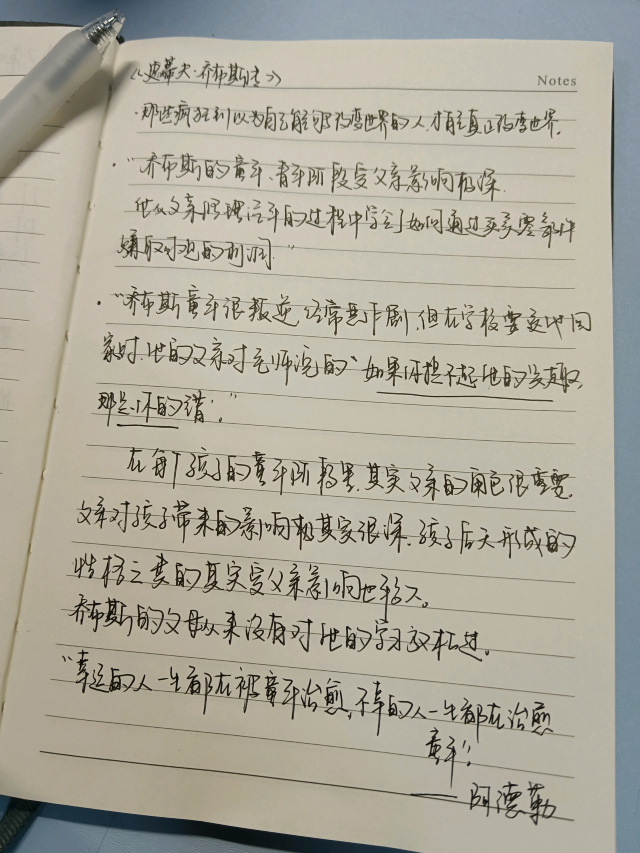 《史蒂夫·乔布斯传》
Notes
·那些疯狂到以为自己能够改变世界的人,才能真正改变世界.
·"乔布斯的童年、青年阶段受父亲影响极深.
他从父亲修理汽车的过程中学会了如何通过买卖零部件
赚取可观的利润."
·"乔布斯童年很叛逆,经常恶作剧,但在学校要交他回
家时,他的父亲对老师说的"如果你提不起他的兴趣,
那是你的错."
在每个孩子的童年阶段里,其实父亲的角色很重要,
父亲对孩子带来的影响极其深很深,孩子后天形成的
性格主要的其实受父亲影响也很深。
乔布斯的父母从来没有对他的学习放松过。
"幸运的人一生都在被童年治愈,不幸的人一生都在治愈
童年."
——阿德勒